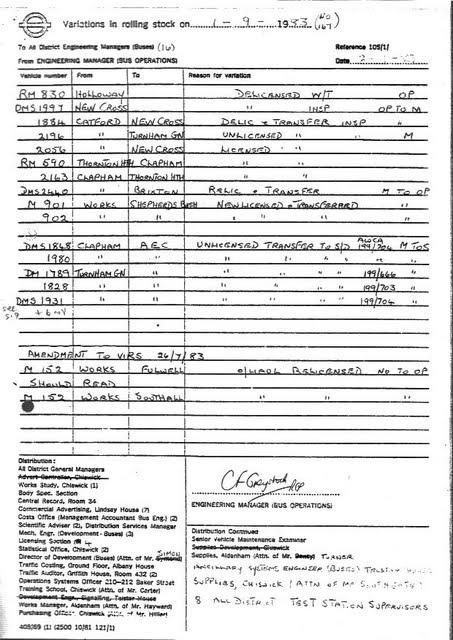 Variations in rolling stock on 1 - 9 - 1983 (NO 167)
To All District Engineering Managers (Buses) (16)
Reference 105/1/
From ENGINEERING MANAGER (BUS OPERATIONS)
Date
Vehicle number From To Reason for variation
RM 830 HOLLOWAY DELICENSED W/T OP
DMS 1997 NEW CROSS " INSP OP TO M
1884 CATFORD NEW CROSS DELIC & TRANSFER INSP "
2196 " TURNHAM GN UNLICENSED " M
2056 " NEW CROSS LICENSED " "
RM 590 THORNTON HTH CLAPHAM " "
2163 CLAPHAM THORNTON HTH " "
DMS 2440 " BRIXTON RELIC & TRANSFER M TO OP
M 901 WORKS SHEPHERDS BUSH NEW LICENSED & TRANSFERRED "
902 " " " " "
DMS 1848 CLAPHAM AEC UNLICENSED TRANSFER TO S/D 199/704 M TO S
1980 " " " " " " "
DM 1789 TURNHAM GN " " " " 199/666 "
1828 " " " " " 199/703 "
DMS 1931 " " " " " 199/704 "
AMENDMENT TO VIRS 26/7/83
M 152 WORKS FULWELL O/HAUL RELICENSED NO TO OP
SHOULD READ
M 152 WORKS SOUTHALL " " "
Distribution:
All District General Managers
Advert Controller, Chiswick
Works Study, Chiswick (1)
Body Spec. Section
Central Record, Room 34
Commercial Advertising, Lindsay House (7)
Costs Office (Management Accountant Bus Eng.) (2)
Scientific Adviser (2), Distribution Services Manager
Mech. Engr. (Development - Buses) (3)
Licensing Section 4
Statistical Office, Chiswick (2)
Director of Development (Buses) (Attn. of Mr. SIMON)
Traffic Costing, Ground Floor, Albany House
Traffic Auditor, Griffith House, Room 432 (2)
Operations Systems Officer 210-212 Baker Street
Training School, Chiswick (Attn. of Mr. Carter)
Development Engr. Signalling, Telstar House
Works Manager, Aldenham (Attn. of Mr. Hayward)
Purchasing Officer, Chiswick (Attn. of Mr. Hillier)
405/69 (1) (2500 10/81 121/1)
ENGINEERING MANAGER (BUS OPERATIONS)
Distribution Continued
Senior Vehicle Maintenance Examiner
Supplies Development Chiswick
Supplies, Aldenham (Attn. of Mr. TURNER
ANCILLARY SYSTEMS ENGINEER (BUSES) TELSTAR HOUSE
SUPPLIES, CHISWICK (ATTN OF MR SOUTHGATE)
8 ALL DISTRICT TEST STATION SUPERVISORS